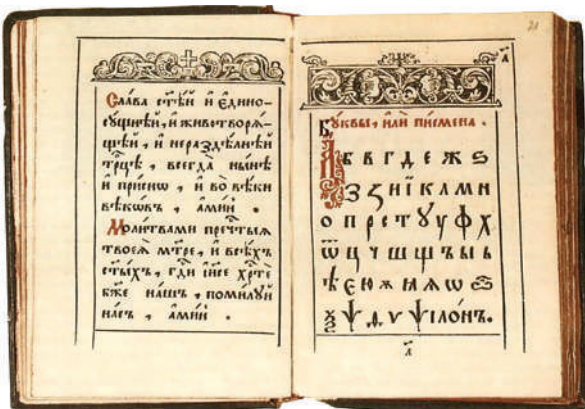 Сла́ва ст҃ѣ́й и҆ є҆дино-
сꙋ́щнѣй, и҆ животворѧ́-
щѣй, и҆ нераздѣ́лнѣй
трⷪ҇цѣ, всегда̀ ны́нѣ
и҆ при́снѡ, и҆ во вѣ́ки
вѣкѡ́въ, а҆ми́нь.
Моли́твами пречⷭ҇тыѧ
твоеѧ̀ мт҃ре, и҆ всѣ́хъ
ст҃ы́хъ, гдⷭ҇и і҆и҃се хрⷭ҇те
бж҃е на́шъ, поми́лꙋй
на́съ, а҆ми́нь.
21
а҃
Бꙋ́квы, и҆лѝ пи́смена.
А Б В Г Д Е Ж Ѕ
З Ꙁ Н Ї К Л М Н
О П Р С Т Ꙋ У Ф Х
Ѿ Ц Ч Ш Щ Ъ Ы Ь
Ѣ Є Ю Ѫ Ꙗ Ѧ Ѡ Ѽ
Ѯ Ѱ Ѳ Ѵ Ѱїло́нъ.
а҃